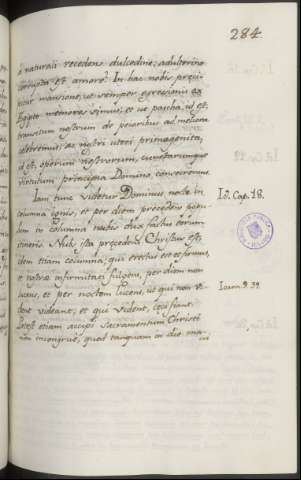 284
à naturali recedens dulcedine, adulterino
corrupta est amore? In hac nobis præci-
mansione, ut semper egressionis ex
Egipto memores simus; et ut pascha, id est,
transitum nostrum de peioribus ad meliora
celebremus; ut nostri uteri primogenita,
id est, operum nostrorum, cunctarumque
virtutum principia Domino consecremus.
Iam tunc videtur Dominus nocte in
columna ignis, et per diem precedens popu-
lum in columna nubis dux factus eorum
itineris. Nubi ista precedens Christus est,
idem etiam columna; qui erectus est et firmus,
et nostræ infirmitati fulgens, per diem non
lucens, et per noctem lucens, ut qui non vi-
dent videant, et qui vident, cæci fiant.
Potest etiam accipi Sacramentum Christi
non incongrue, quod tanquam in duo ma-
Is. Cap. 18.
Ioann. 9. 39.